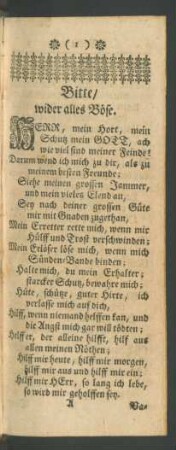 ( 1 )
Bitte/
wider alles Böse.
HERR, mein Hort, mein
Schutz mein GOTT, ach
wie viel sind meiner Feinde!
Darum wend ich mich zu dir, als zu
meinem besten Freunde:
Siehe meinen grossen Jammer,
und mein vieles Elend an,
Sey nach deiner grossen Güte
mir mit Gnaden zugethan,
Mein Erretter rette mich, wenn mir
Hülff und Trost verschwinden;
Mein Erlöser löse mich, wenn mich
Sünden-Bande binden:
Halte mich, du mein Erhalter;
starcker Schutz, bewahre mich;
Hüte, schütze, guter Hirte, ich
verlasse mich auf dich,
Hülff, wenn niemand helffen kan, und
die Angst mich gar will tödten;
Helffer, der alleine hilfft, hilf aus
allen meinen Nöthen;
Hülff mir heute, hilff mir morgen,
hilff mir aus und hilff mir ein;
Hilff mir HErr, so lang ich lebe,
so wird mir geholffen sey.
A
Va-